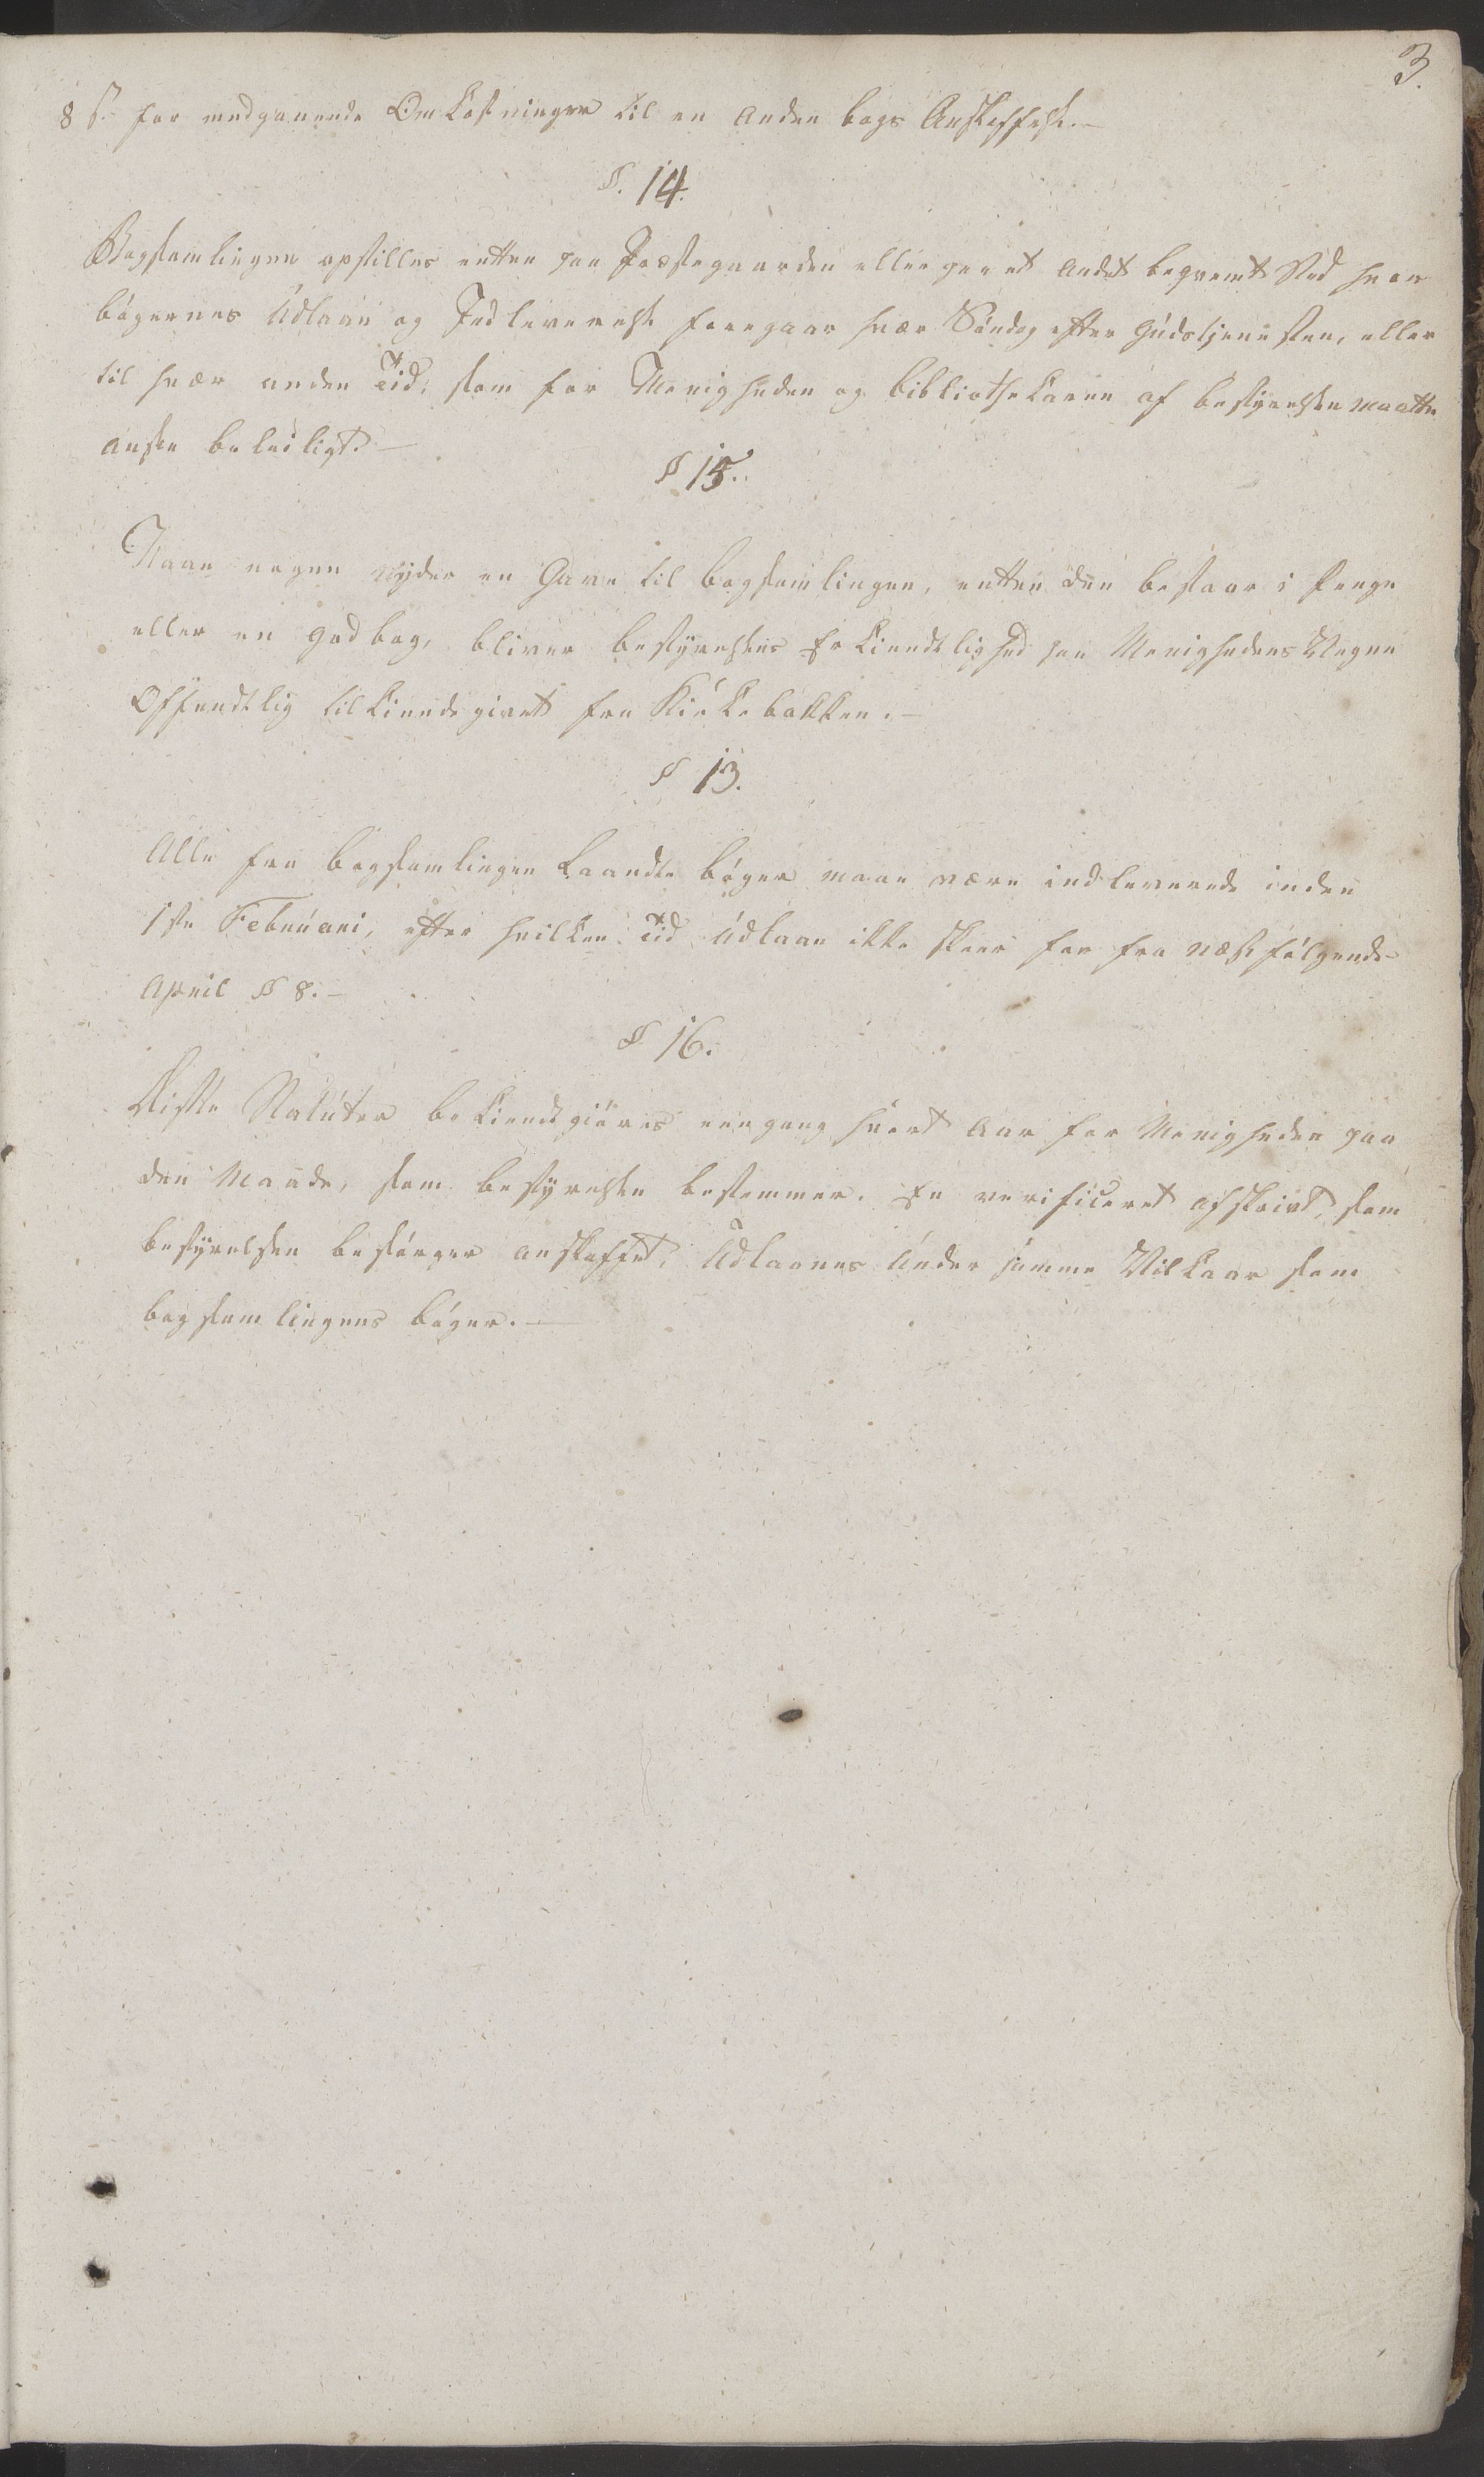 3.
8 ß. for medgaaende Omkostninger til en anden bogs Anskaffelse.—
§. 14.
Bogsamlingen opstilles enten paa Præstegaarden eller paa et andet beqvemt Sted hvor
bøgernes Udlaan og Indleverelse foregaar hver Søndag efter Gudstjenesten, eller
til hver anden Tid, som for Menigheden og bibliothekaren af bestyrelsen maatte
ansees beleiligt.—
§ 15.
Naar nogen yder en Gave til bogsamlingen, enten den bestaar i Penge
eller en god bog, bliver bestyrelsens Erkiendtlighed paa Menighedens Vegne
Offendtlig tilkiendegivet fra Kirkebakken.—
§ 13.
Alle fra bogsamlingen laandte bøger maae være indleverede inden
1ste Februari, efter hvilken Tid Udlaan ikke skeer før fra næstfølgende
April § 8.—
§ 16.
Disse Statuter bekiendtgiøres eengang hvert Aar for Menigheden paa
den Maade, som bestyrelsen bestemmer. En verificeret afskrivt, som
bestyrelsen besørger anskaffet, Udlaanes under samme Vilkaar som
bogsamlingens bøger.—